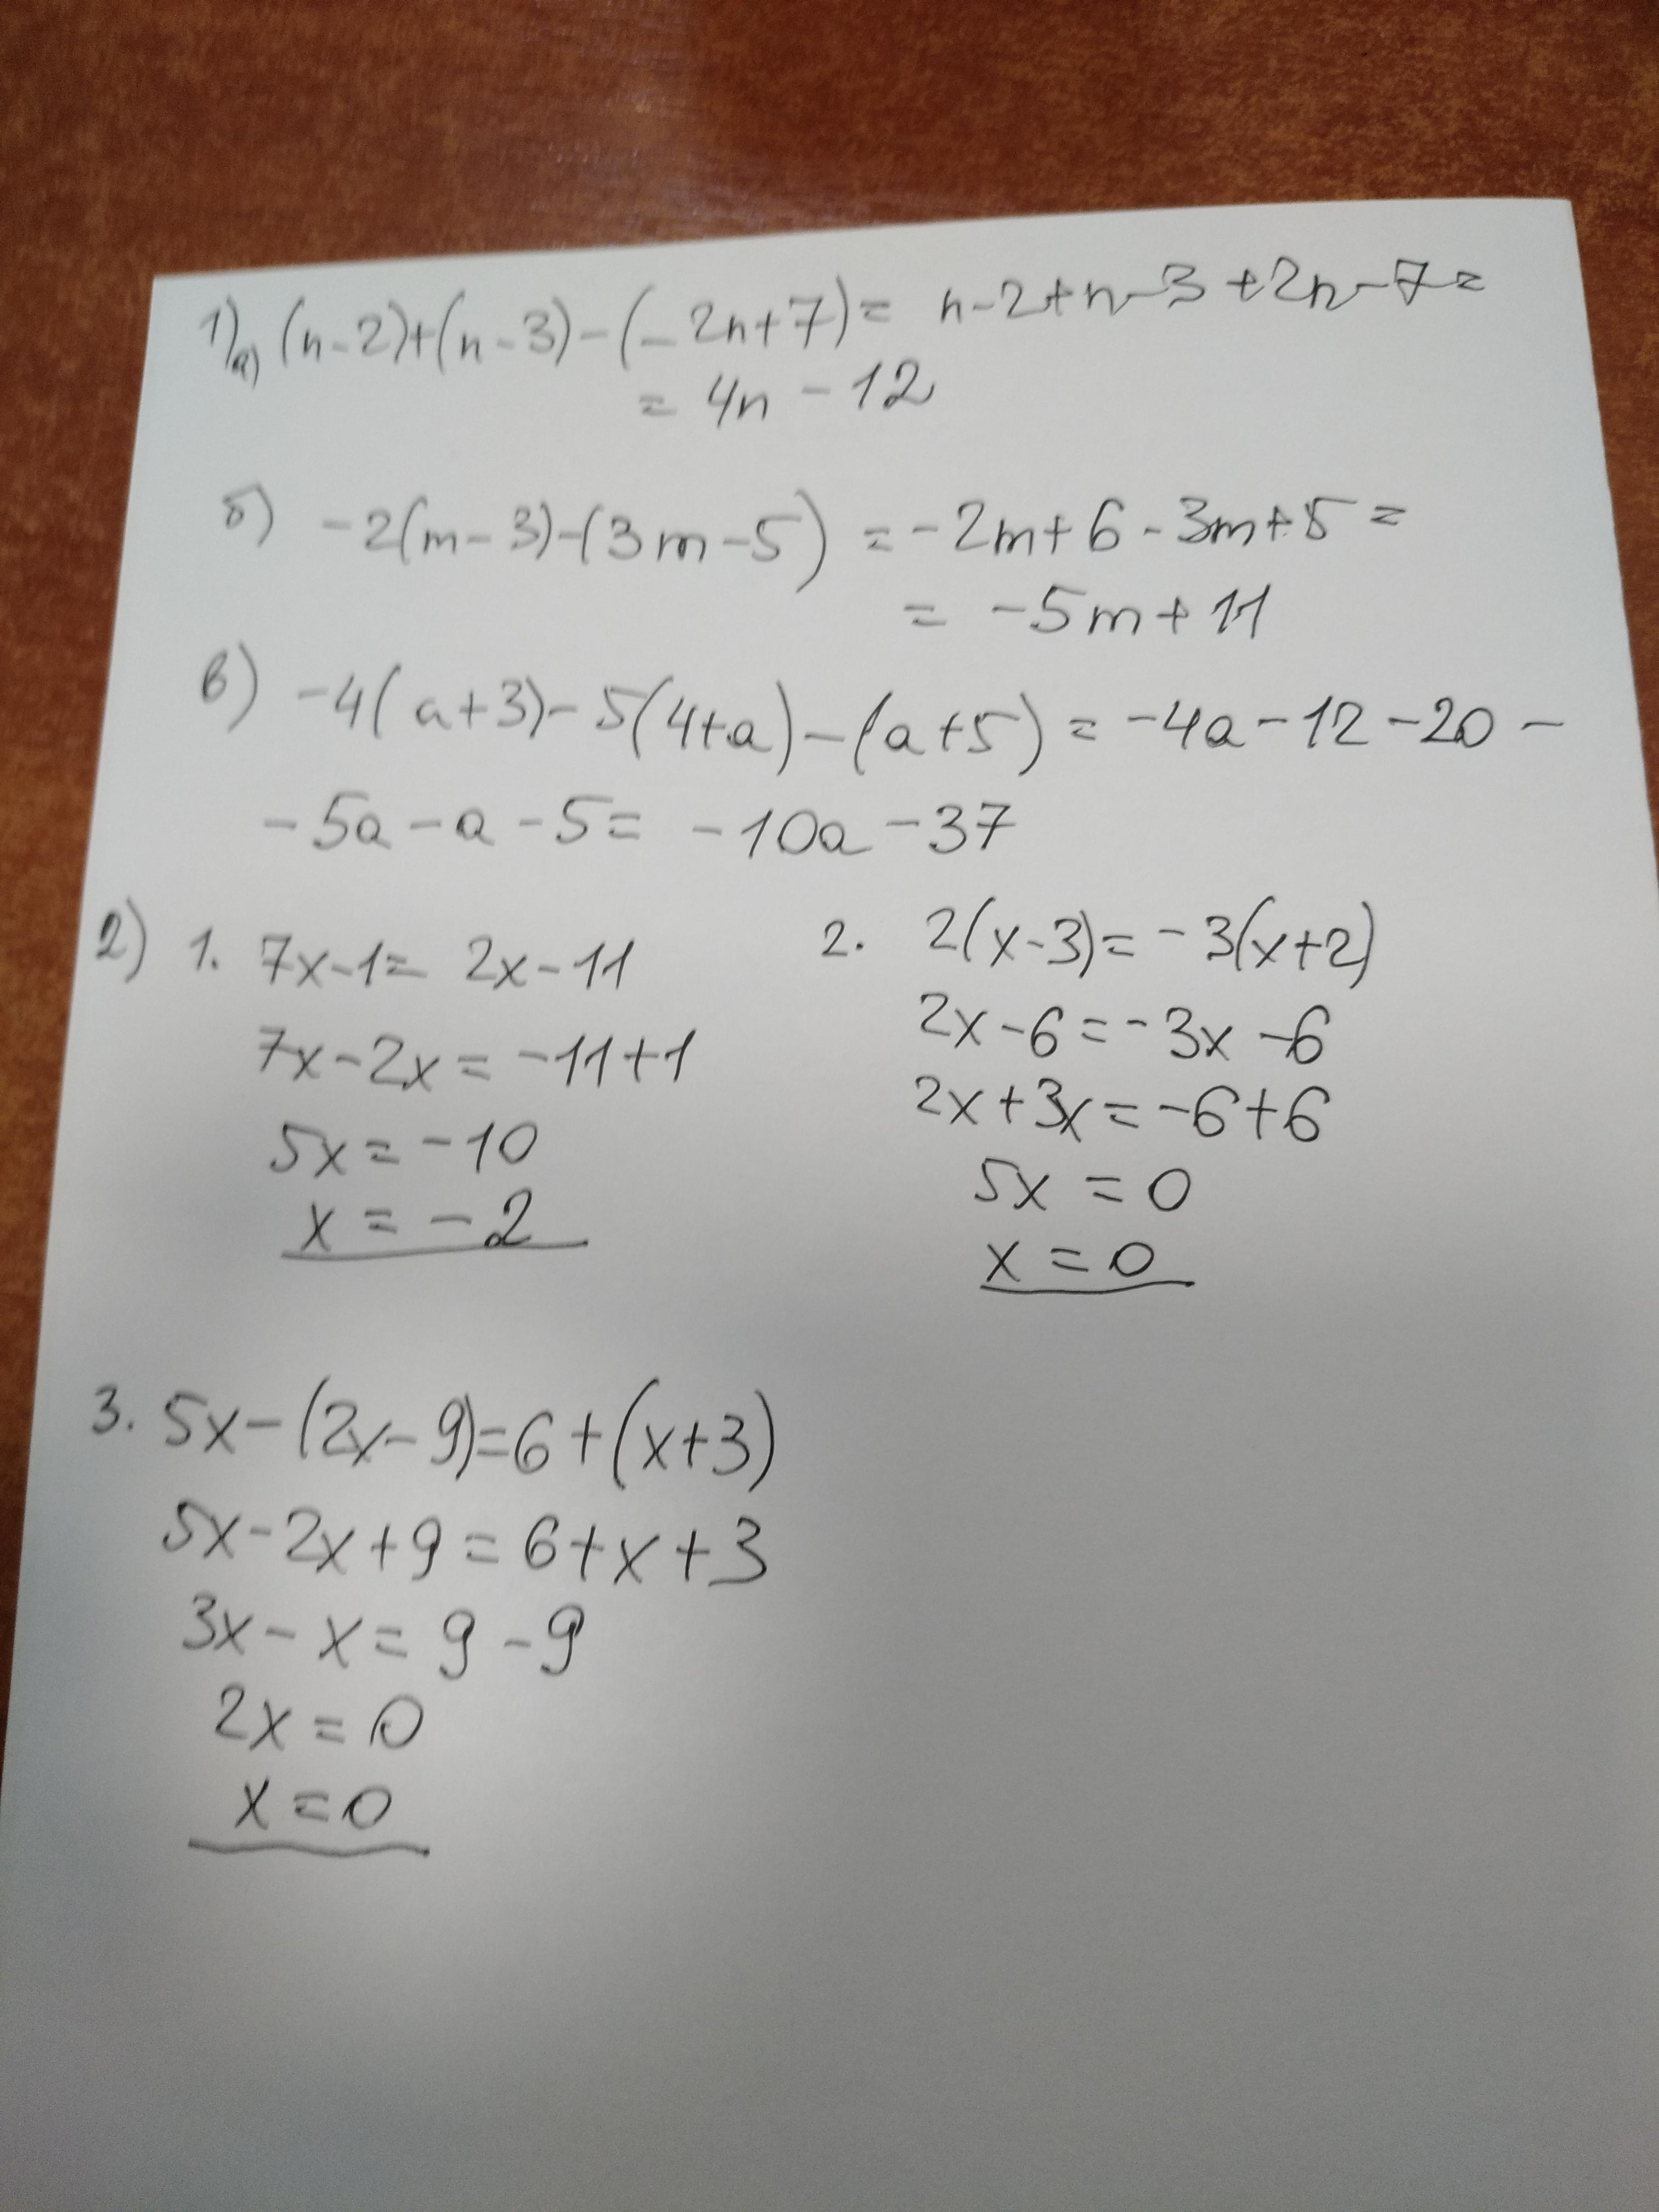 1) а) (n-2)+(n-3)-(-2n+7)= n-2+n-3+2n-7=
= 4n - 12
б) -2(m-3)-(3m-5) = -2m+6-3m+5=
= -5m+11
в) -4(a+3)-5(4+a)-(a+5)= -4a-12-20-
-5a-a-5= -10a-37
2) 1. 7x-1= 2x-11
7x-2x= -11+1
5x= -10
x= -2
2. 2(x-3)= -3(x+2)
2x-6= -3x-6
2x+3x= -6+6
5x=0
x=0
3. 5x-(2x-9)=6+(x+3)
5x-2x+9=6+x+3
3x-x=9-9
2x=0
x=0